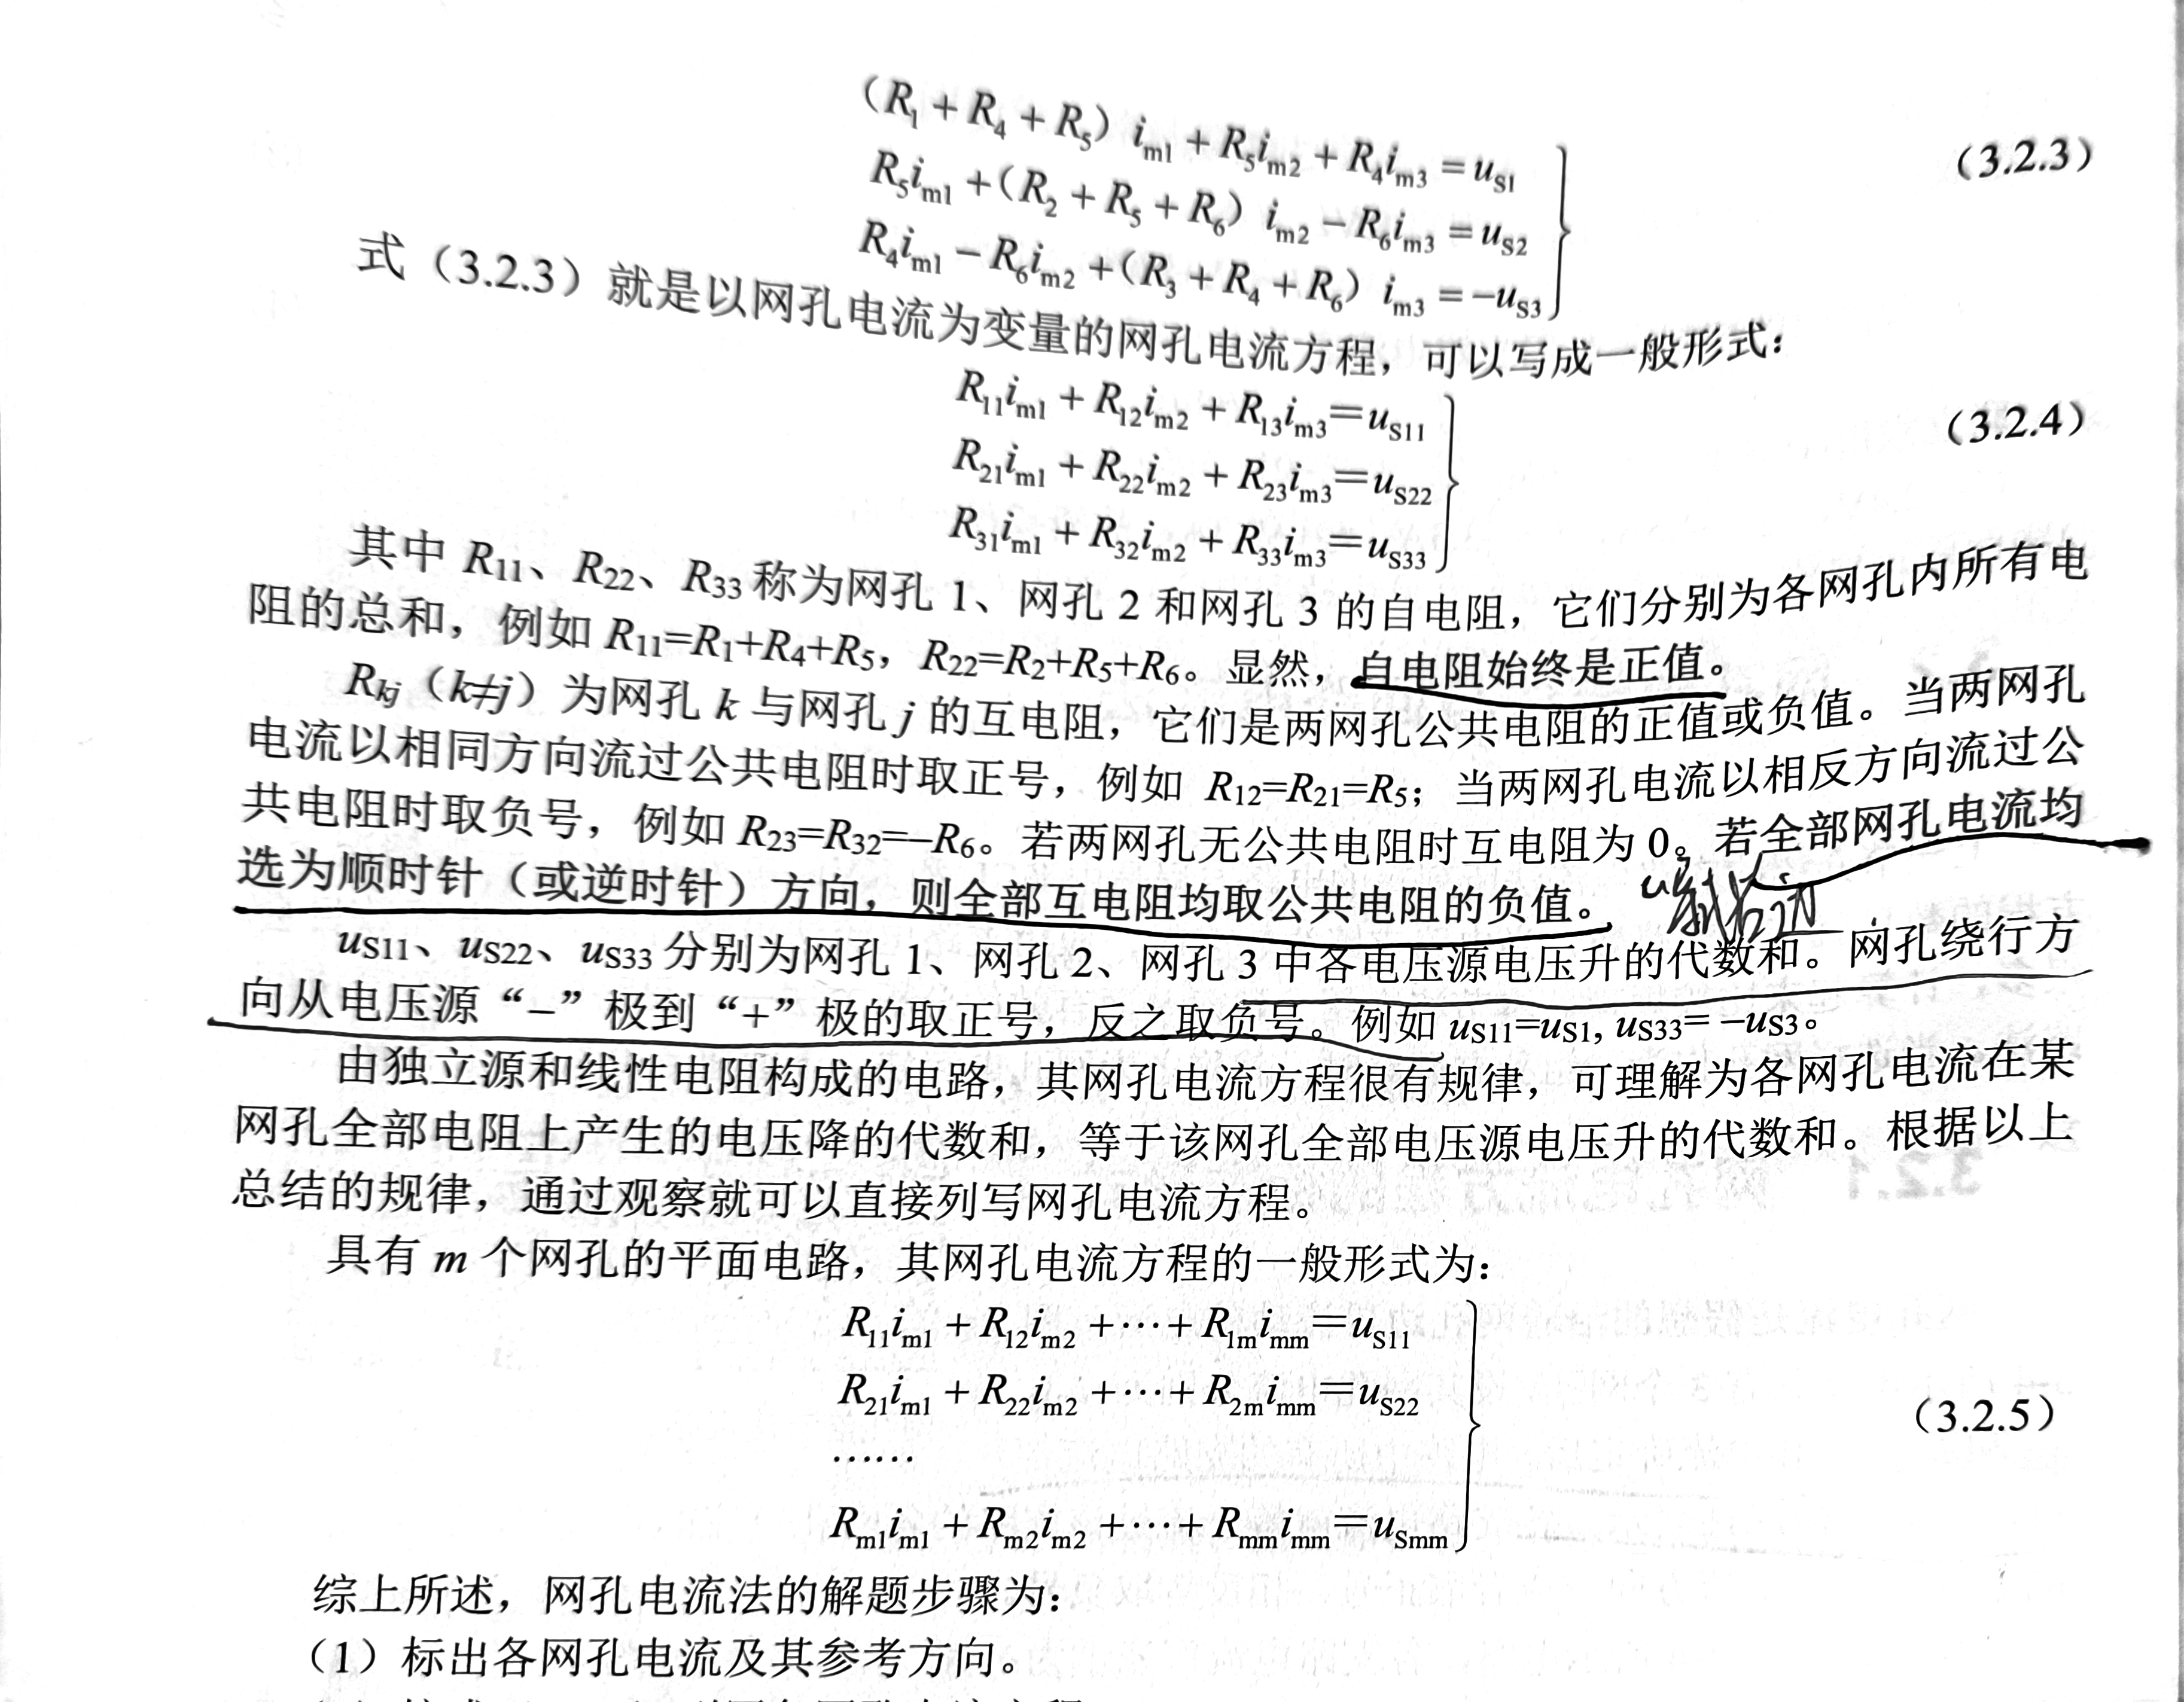 (R₁ + R₄ + R₅) iₘ₁ + R₅iₘ₂ + R₄iₘ₃ = uS1
R₅iₘ₁ + (R₂ + R₅ + R₆) iₘ₂ − R₆iₘ₃ = uS2 (3.2.3)
R₄iₘ₁ − R₆iₘ₂ + (R₃ + R₄ + R₆) iₘ₃ = −uS3
式（3.2.3）就是以网孔电流为变量的网孔电流方程，可以写成一般形式：
R₁₁iₘ₁ + R₁₂iₘ₂ + R₁₃iₘ₃=uS11
R₂₁iₘ₁ + R₂₂iₘ₂ + R₂₃iₘ₃=uS22 (3.2.4)
R₃₁iₘ₁ + R₃₂iₘ₂ + R₃₃iₘ₃=uS33
其中 R₁₁、R₂₂、R₃₃ 称为网孔 1、网孔 2 和网孔 3 的自电阻，它们分别为各网孔内所有电
阻的总和，例如 R₁₁=R₁+R₄+R₅，R₂₂=R₂+R₅+R₆。显然，自电阻始终是正值。
Rkj（k≠j）为网孔 k 与网孔 j 的互电阻，它们是两网孔公共电阻的正值或负值。当两网孔
电流以相同方向流过公共电阻时取正号，例如 R₁₂=R₂₁=R₅；当两网孔电流以相反方向流过公
共电阻时取负号，例如 R₂₃=R₃₂=−R₆。若两网孔无公共电阻时互电阻为 0。若全部网孔电流均
选为顺时针（或逆时针）方向，则全部互电阻均取公共电阻的负值。
uS11、uS22、uS33 分别为网孔 1、网孔 2、网孔 3 中各电压源电压升的代数和。网孔绕行方
向从电压源“−”极到“+”极的取正号，反之取负号。例如 uS11=uS1, uS33= −uS3。
由独立源和线性电阻构成的电路，其网孔电流方程很有规律，可理解为各网孔电流在某
网孔全部电阻上产生的电压降的代数和，等于该网孔全部电压源电压升的代数和。根据以上
总结的规律，通过观察就可以直接列写网孔电流方程。
具有 m 个网孔的平面电路，其网孔电流方程的一般形式为：
R₁₁iₘ₁ + R₁₂iₘ₂ +⋯+ R₁ₘiₘₘ=uS11
R₂₁iₘ₁ + R₂₂iₘ₂ +⋯+ R₂ₘiₘₘ=uS22 (3.2.5)
⋯⋯
Rₘ₁iₘ₁ + Rₘ₂iₘ₂ +⋯+ Rₘₘiₘₘ=uSmm
综上所述，网孔电流法的解题步骤为：
（1）标出各网孔电流及其参考方向。